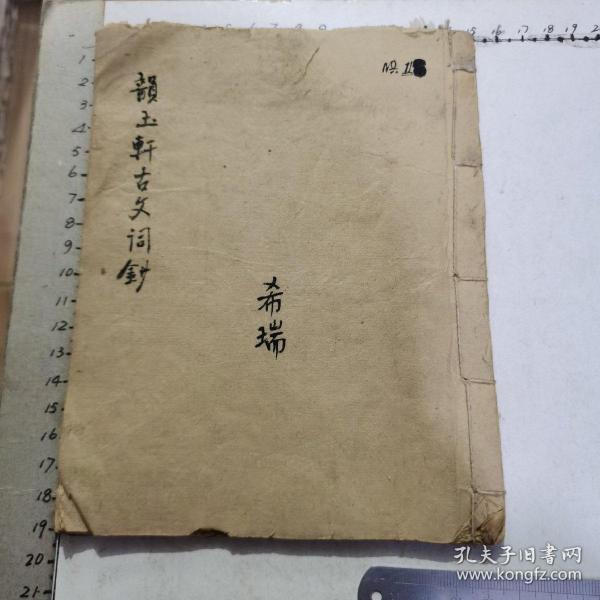 韻玉軒古文词鈔
希瑞
NO.
1-
2-
3-
4-
5-
6-
7-
8-
9-
10-
11-
12-
13-
14-
15-
16-
17-
18-
19-
20-
21-
15 16 17 18 19 2
孔夫子旧书网
www.kongfz.com